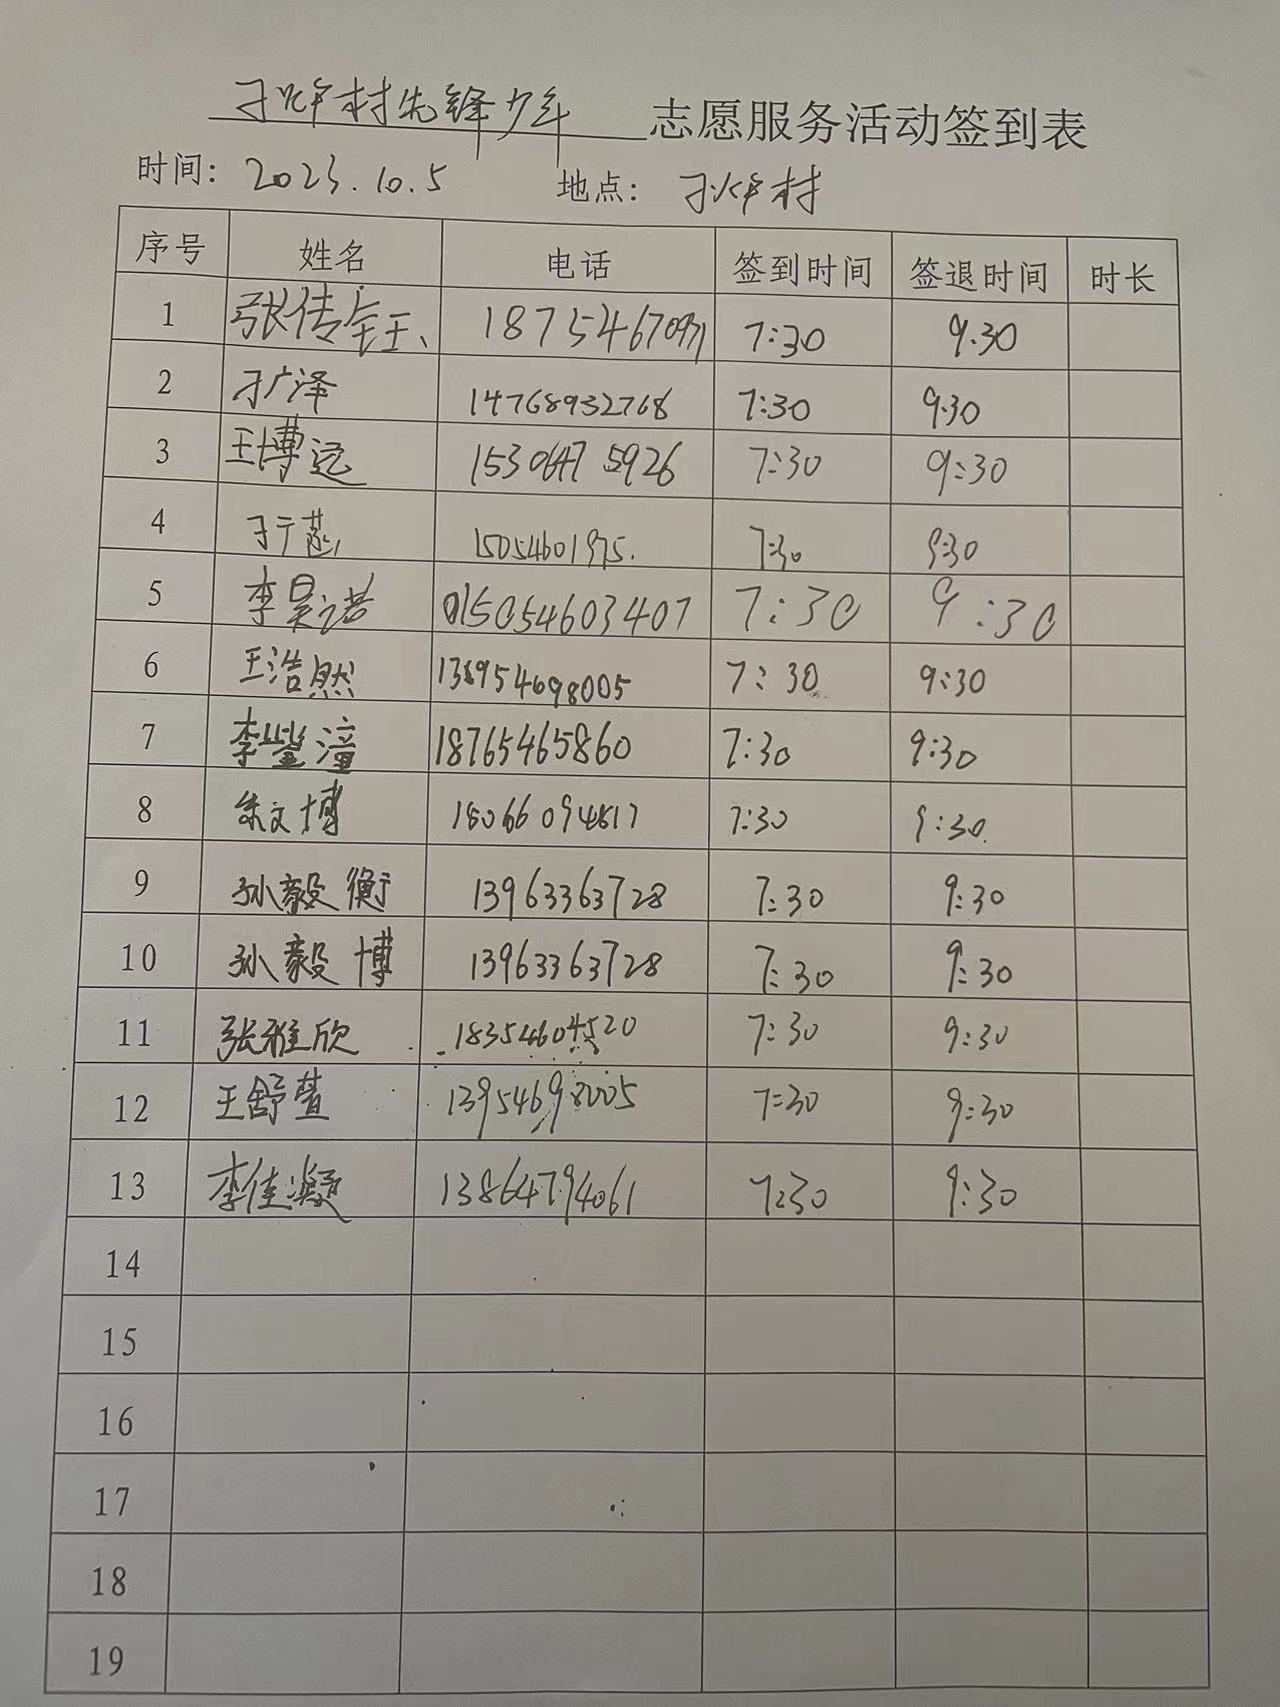 村先锋少年 志愿服务活动签到表
时间: 2023.10.5 地点: 村
序号 姓名 电话 签到时间 签退时间 时长
1 张传钰 18754670971 7:30 9:30
2 刁广泽 14768932768 7:30 9:30
3 王博远 15306475926 7:30 9:30
4 15054601975. 7:30 9:30
5 李昊诺 015054603407 7:30 9:30
6 王浩然 138954698005 7:30 9:30
7 李潼 18765465860 7:30 9:30
8 朱文博 18066094617 7:30 9:30
9 孙毅衡 13963363728 7:30 9:30
10 孙毅博 13963363728 7:30 9:30
11 张雅欣 18354604520 7:30 9:30
12 王舒萱 13954698005 7:30 9:30
13 李佳凝 13864794061 7:30 9:30
14
15
16
17
18
19